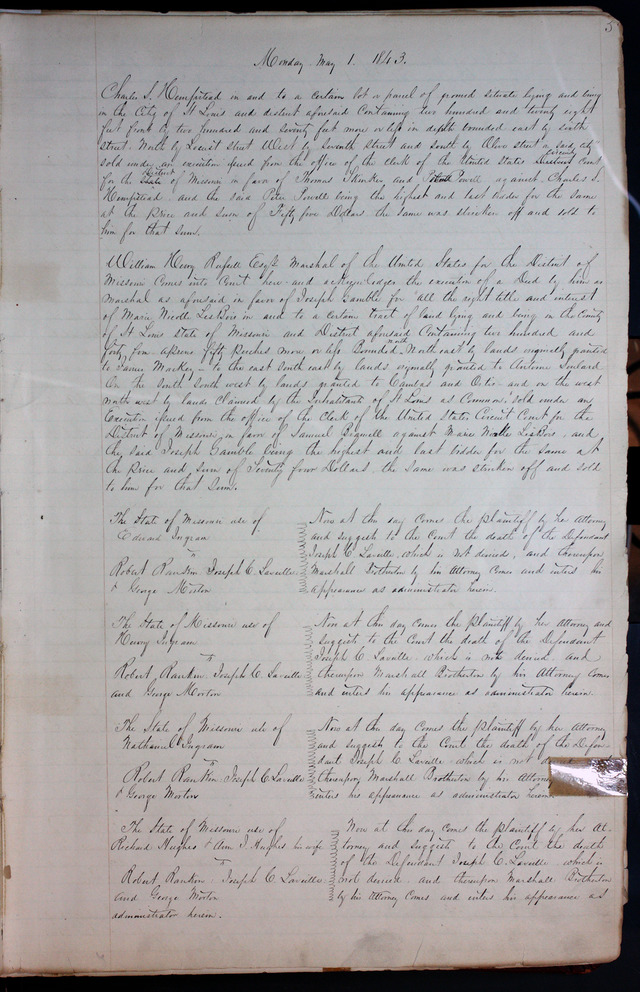 5
Monday May 1. 1843.
Charles S. Hempstead in and to a certain lot or parcel of ground situate lying and being
in the City of St Louis and district aforesaid Containing two hundred and twenty eight
feet front by two hundred and seventy feet more or less in depth bounded east by sixth
street North by Locust street West by Seventh Street and South by Olive street in said city
sold under an execution issued from the office of the clerk of the United States Circuit Court
for the District of Missouri in favor of Thomas Skinker and Powell against Charles S.
Hempstead and the said Peter Powell being the highest and last bidder for the same
at the price and sum of Fifty five Dollars the same was stricken off and sold to
him for that sum.
William Henry Russell Esqr Marshal of the United States for the District of
Missouri Comes into Court here and acknowledges the execution of a Deed by him as
Marshal as aforesaid in favor of Joseph Gamble for all the right title and interest
of Marie Nicolle LesBois in and to a certain tract of land lying and being in the County
of St Louis State of Missouri and District aforesaid Containing two hundred and
forty four arpens fifty perches more or less Bounded North east by lands originally granted
to James Mackey - to the east South east by lands originally granted to Antoine Soulard
On the South South west by lands granted to and Ortis and on the west
north west by lands Claimed by the Inhabitants of St Louis as Common. Sold under an
Execution issued from the office of the Clerk of the United States Circuit Court for the
District of Missouri in favor of Samuel against Marie Nicolle LesBois, and
the said Joseph Gamble being the highest and last bidder for the same at
the price and sum of Seventy four Dollars the same was stricken off and sold
to him for that Sum.
The State of Missouri use of
Edward Ingram
vs
Robert Rankin Joseph C. Laveille
& George Morton
Now at this day Comes the plaintiff by her Attorney
and suggests to the Court the death of the Defendant
Joseph C. Laveille which is not denied, and thereupon
Marshall Brotherton by his Attorney Comes and enters his
appearance as administrator herein.
The State of Missouri use of
Henry Ingram
vs
Robert Rankin Joseph C. Laveille
and George Morton
Now at this day comes the plaintiff by her Attorney and
Suggests to the Court the death of the Defendant
Joseph C. Laveille which is not denied and
thereupon Marshall Brotherton by his Attorney Comes
and enters his appearance as administrator herein.
The State of Missouri use of
Nathaniel Ingram
vs
Robert Rankin Joseph C Laveille
& George Morton
Now at this day comes the plaintiff by her Attorney
and suggests to the Court the death of the Defen-
dant Joseph C. Laveille which is not
thereupon Marshall Brotherton by his Attorney
enters his appearance as administrator herein.
The State of Missouri use of
Richard Hughes & Ann I. Hughes his wife
vs
Robert Rankin Joseph C. Laveille
and George Morton
Now at this day comes the plaintiff by her At-
torney and Suggests to the Court the death
of the Defendant Joseph C. Laveille which is
not denied and thereupon Marshall Brotherton
by his Attorney Comes and enters his appearance as
administrator herein.